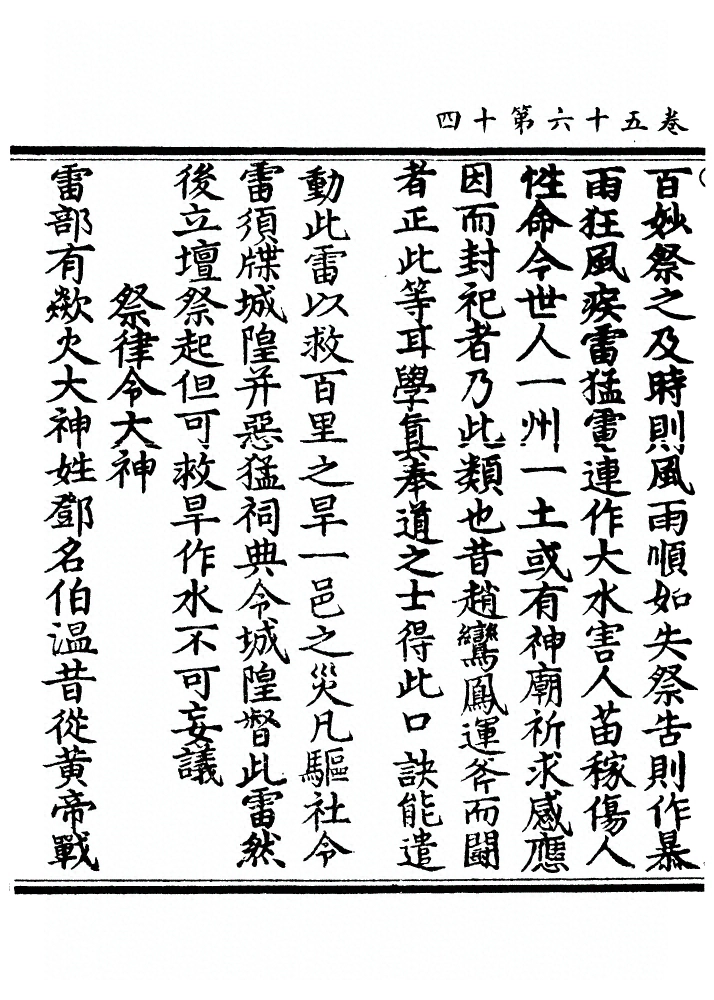 卷五十六第十四
百妙祭之及時則風雨順如失祭告則作暴
雨狂風疾雷猛電連作大水害人苗稼傷人
性命今世人一州一土或有神廟祈求感應
因而封祀者乃此類也昔趙鸞鳳運斧而鬭
者正此等耳學真奉道之士得此口訣能遣
動此雷以救百里之旱一邑之災凡驅社令
雷須牒城隍并惡猛祠典令城隍督此雷然
後立壇祭起但可救旱作水不可妄議
祭律令大神
雷部有歘火大神姓鄧名伯溫昔從黃帝戰